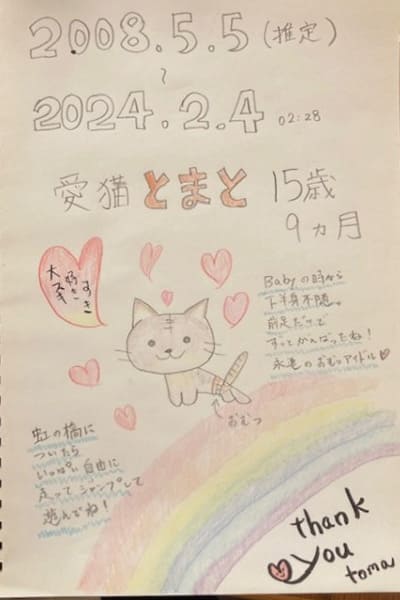 2008.5.5(推定)
〜
2024.2.4 02:28
愛猫とまと 15歳
9ヵ月
すき
好き
大スキ
Babyの時から
下半身不随。
前足だけで
ずっとがんばったね!
永遠のおむつアイドル♡
おむつ
虹の橋に
ついたら
いっぱい自由に
走ってジャンプして
遊んでね!
thank
you
toma